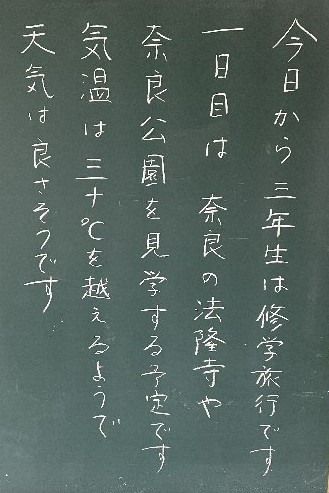 今日から三年生は修学旅行です
一日目は 奈良の法隆寺や
奈良公園を見学する予定です
気温は三十℃を越えるようで
天気は良さそうです